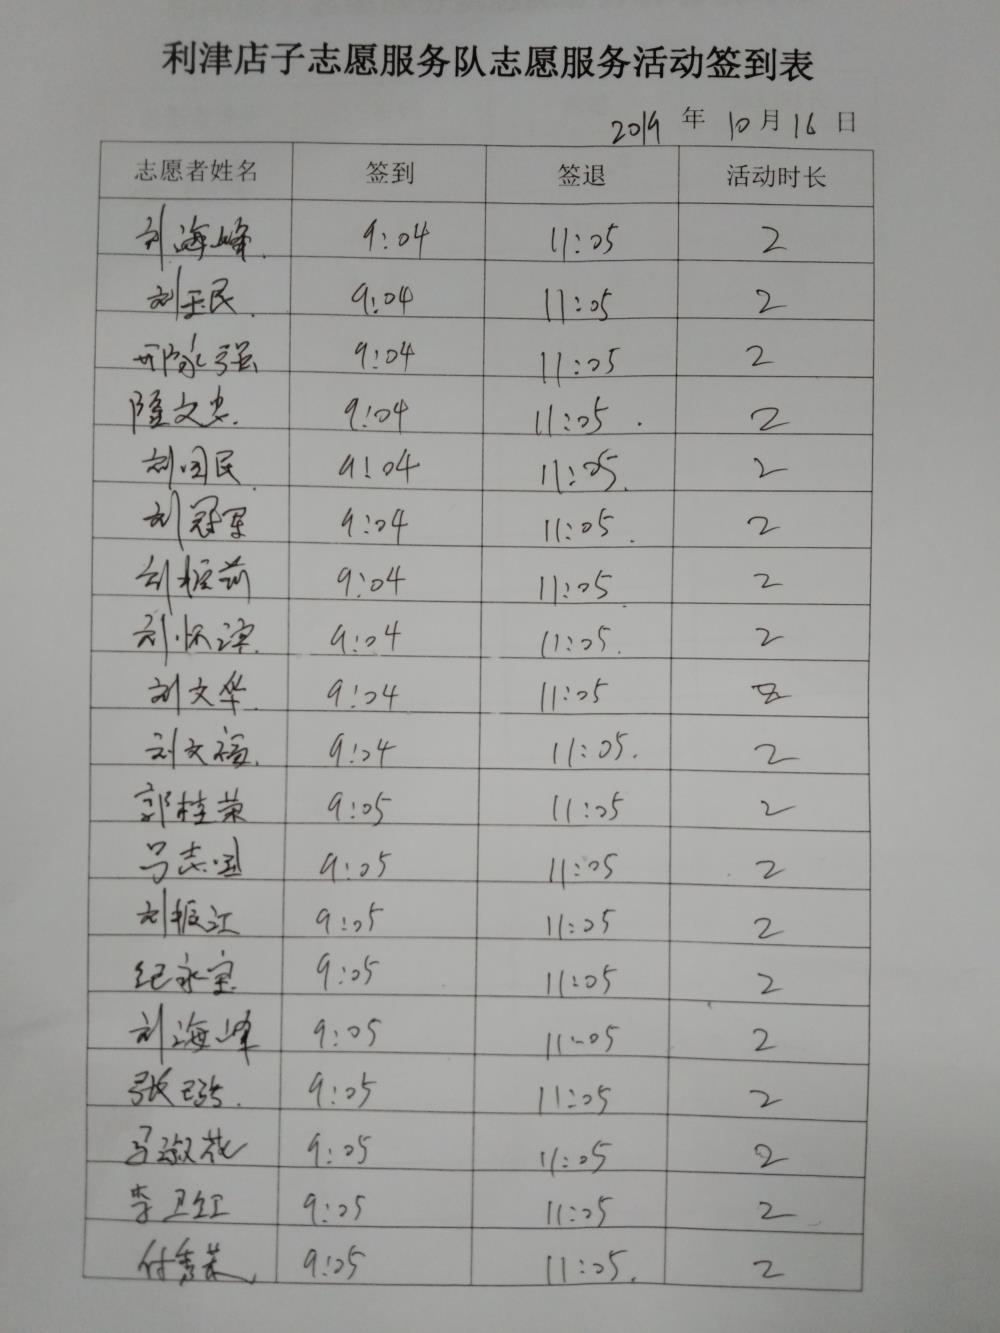 利津店子志愿服务队志愿服务活动签到表
2019 年 10 月 16 日
志愿者姓名 签到 签退 活动时长
刘海峰 9:04 11:05 2
刘玉民 9:04 11:05 2
邢家强 9:04 11:05 2
隆文忠 9:04 11:05 2
刘国民 9:04 11:05 2
刘冠军 9:04 11:05 2
刘振 9:04 11:05 2
刘怀 9:04 11:05 2
刘文华 9:04 11:05 2
刘文福 9:04 11:05 2
郭桂荣 9:05 11:05 2
马志国 9:05 11:05 2
刘振江 9:05 11:05 2
纪永宝 9:05 11:05 2
刘海峰 9:05 11:05 2
张 9:05 11:05 2
马淑花 9:05 11:05 2
李卫红 9:05 11:05 2
付秀荣 9:05 11:05 2